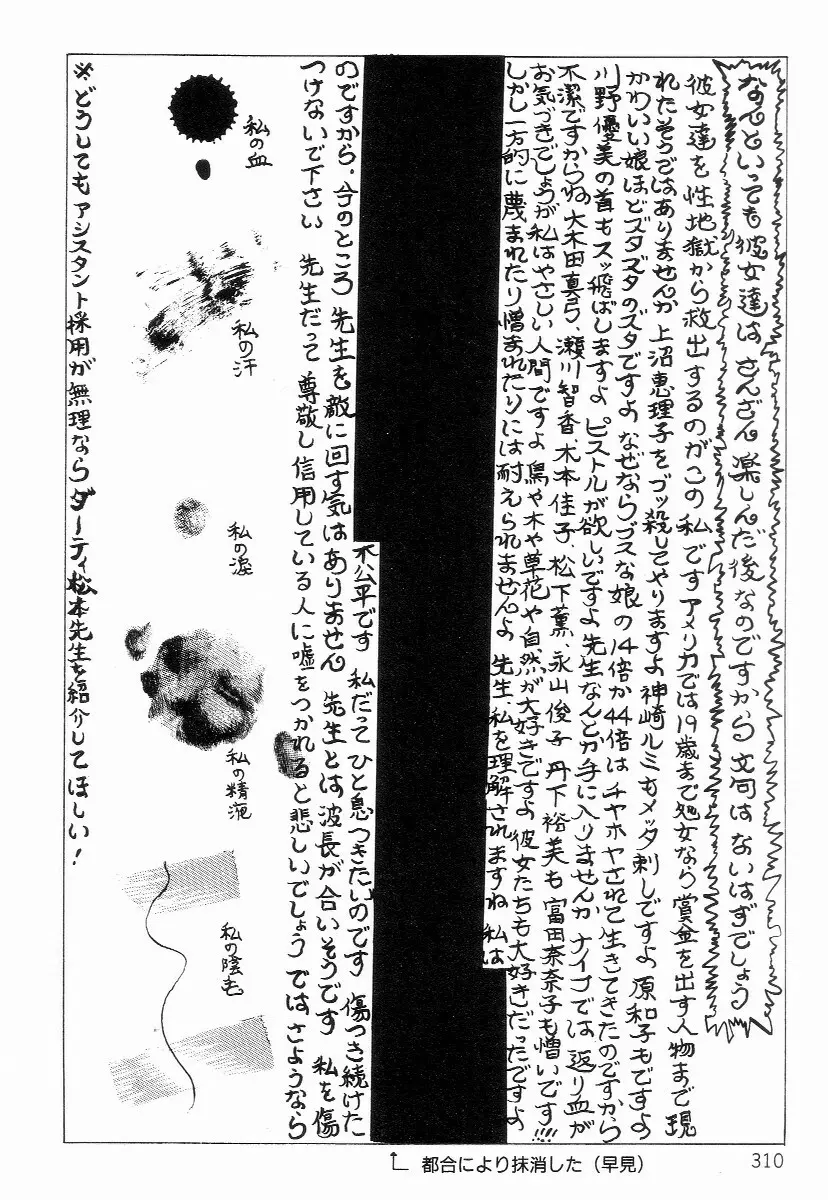 なんといっても彼女達はさんざん楽しんだ後なのですから文句はないはずでしょう
彼女達を性地獄から救出するのがこの私ですアメリカでは19歳まで処女なら賞金を出す人物まで現
れたそうではありませんか上沼恵理子をブッ殺してやりますよ神崎ルミもメッタ刺しですよ 原和子もですよ
かわいい娘ほどズタズタのズタですよ なぜならブスな娘の14倍か44倍はチヤホヤされて生きてきたのですから
川野優美の首もスッ飛ばしますよ ピストルが欲しいですよ先生なんとか手に入りませんか ナイフでは返り血が
不潔ですからね 大木田真弓、瀬川智香、木本佳子、松下薫、永山俊子 丹下裕美も富田奈奈子も憎いです!!!
お気づきでしょうが私はやさしい人間ですよ 鳥や木や草花や自然が大好きですよ 彼女たちも大好きだったですよ
しかし一方的に蔑まれたり憎まれたりには耐えられませんよ 先生、私を理解されますね 私は
不公平です 私だってひと息つきたいのです 傷つき続けた
のですから、今のところ先生を敵に回す気はありません 先生とは波長が合いそうです 私を傷
つけないで下さい 先生だって尊敬し信用している人に嘘をつかれると悲しいでしょう ではさようなら
私の血
私の汗
私の涙
私の精液
私の陰毛
※どうしてもアシスタント採用が無理ならダーティ松本先生を紹介してほしい!
都合により抹消した（早見）
310